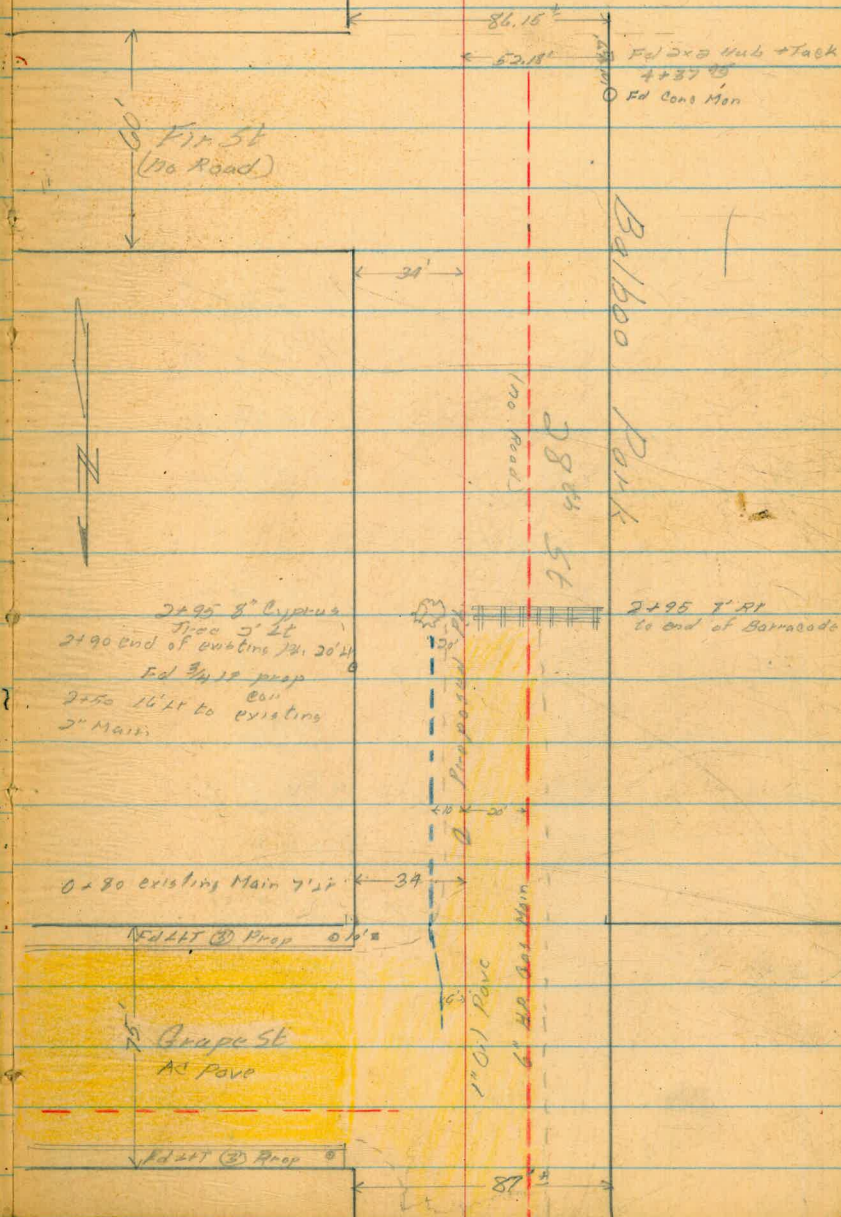 86.15±
52.18'
Fd 2x2 Hub + Tack
4+37 95
Fd Conc Mon
60'
Fir St
(No Road)
34'
Balboa Park
(no Road)
28th St
2+95 8" Cyprus
Tree 2' Lt
2+90 end of existing 20' Lt
Fd 3/4 IP prop
Cor
2+50 16' Lt to existing
2" Main
20'
2+95 8' Rt
to end of Barracade
Proposed
10
20'
0+80 existing Main 7' Lt
34
Fd L&T ③ Prop
10'±
75'
Grape St
AC Pave
1" Oil Pave
6" HP Gas Main
Fd L&T ③ Prop
87'